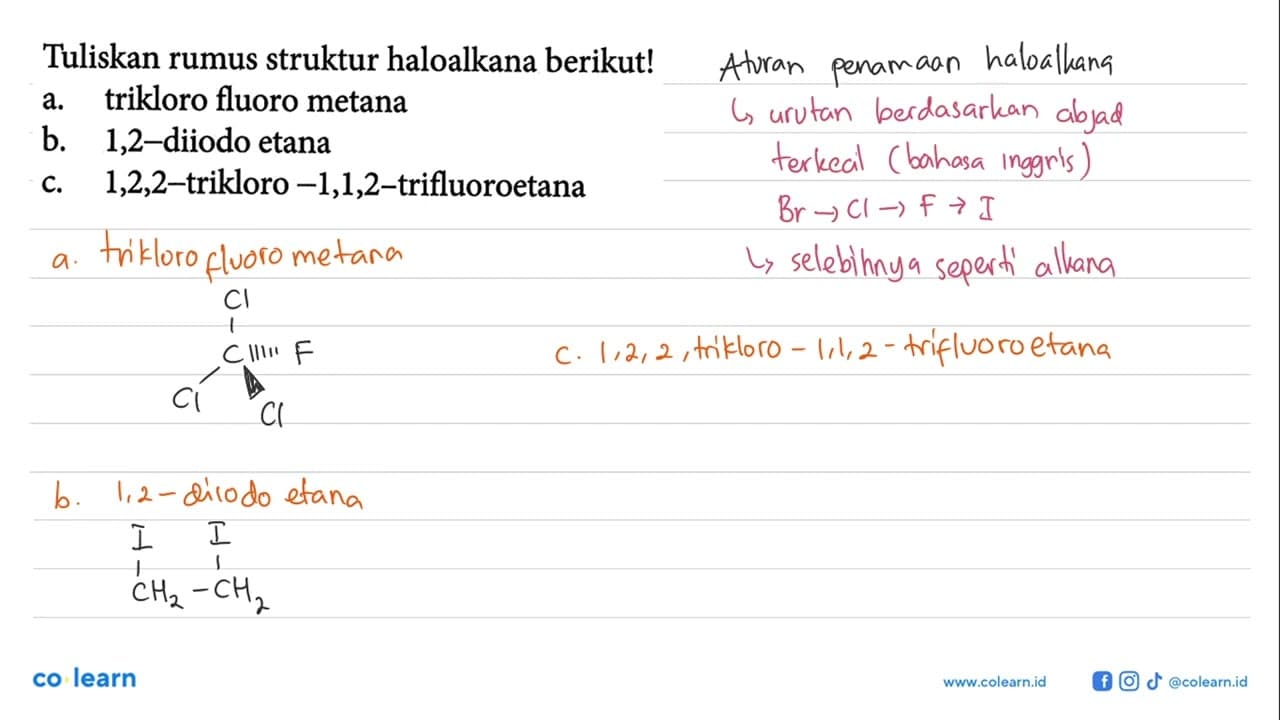 Tuliskan rumus struktur haloalkana berikut!
a. trikloro fluoro metana
b. 1,2–diiodo etana
c. 1,2,2–trikloro –1,1,2–trifluoroetana
Aturan penamaan haloalkana
↳ urutan berdasarkan abjad
terkecil (bahasa inggris)
Br → Cl → F → I
↳ selebihnya seperti alkana
a. trikloro fluoro metana
Cl
C F
Cl Cl
b. 1,2 – diiodo etana
I I
CH2 – CH2
c. 1,2,2, trikloro – 1,1,2 – trifluoro etana
co learn
www.colearn.id
@colearn.id